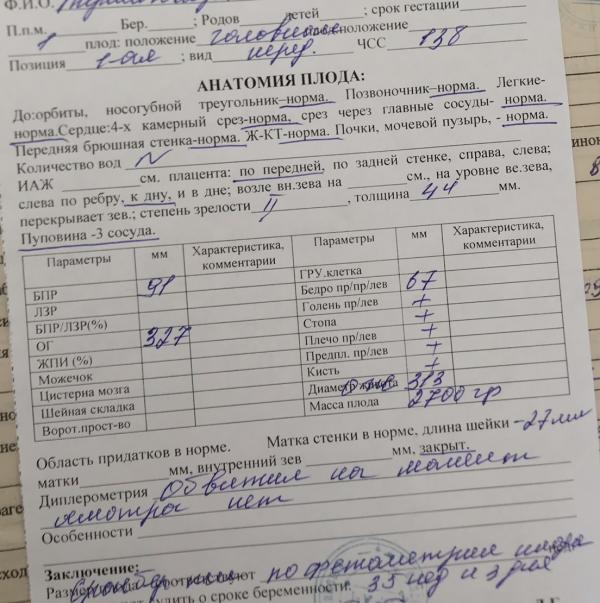 Ф.И.О.
П.п.м. Бер. ; Родов детей ; срок гестации
1 плод: положение головное положение
Позиция 1-ая ; вид перед. ЧСС 138
АНАТОМИЯ ПЛОДА:
До:орбиты, носогубной треугольник–норма. Позвоночник–норма. Легкие-
норма.Сердце:4-х камерный срез-норма, срез через главные сосуды- норма.
Передняя брюшная стенка-норма. Ж-КТ-норма. Почки, мочевой пузырь, - норма.
Количество вод N
ИАЖ см. плацента: по передней, по задней стенке, справа, слева;
слева по ребру, к дну, и в дне; возле вн.зева на см., на уровне ве.зева,
перекрывает зев.; степень зрелости II , толщина 44 мм.
Пуповина -3 сосуда.
Параметры мм Характеристика, комментарии Параметры мм Характеристика, комментарии
БПР 91 ГРУ.клетка
ЛЗР Бедро пр/пр/лев 67
БПР/ЛЗР(%) Голень пр/лев +
ОГ 327 Стопа +
ЖПИ (%) Плечо пр/лев +
Можечок Предпл. пр/лев +
Цистерна мозга Кисть +
Шейная складка Диаметр живота 313
Ворот.прост-во Масса плода 2700 гр
Область придатков в норме. Матка стенки в норме, длина шейки -27мм
матки мм, внутренний зев мм, закрыт.
Диплерометрия Обвития на момент
осмотра нет
Особенности
Заключение:
по фетометрии плода
судить о сроке беременности: 35 нед и 3 дня